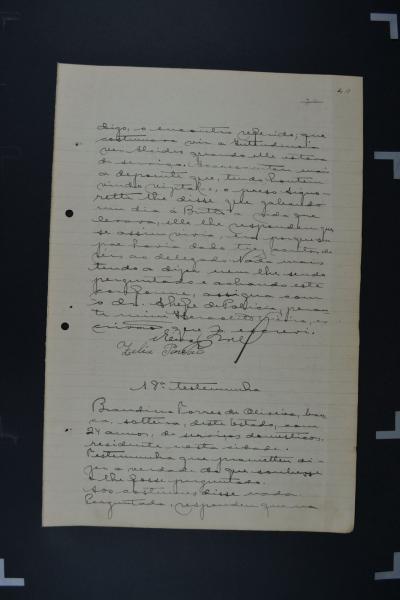 digo, o encontro referido, que
costumava vir a Intendencia
ver Alcides quando elle estava
de serviço. Accrescentou mais
a depoente que, tendo hontem
vindo visital-o, o preso
lhe disse que, falando
um dia á Britto a vida que
levava, elle lhe respondeu que
se assim vivia, era porque
por havia dado
ao delegado. Nada mais
tendo a dizer nem lhe sendo
perguntado e achando este
conforme, assigna com
o dr. Chefe de Policia, perante
mim, es-
crivão, que o escrevi.
18ª testemunha
Brandina Torres de Oliveira, bran-
ca, solteira, deste Estado, com
24 annos, de serviços domesticos,
residente nesta cidade.
Testemunha que prometteu di-
zer a verdade do que soubesse
e lhe fosse perguntado.
Aos costumes disse nada.
Perguntada, respondeu que na